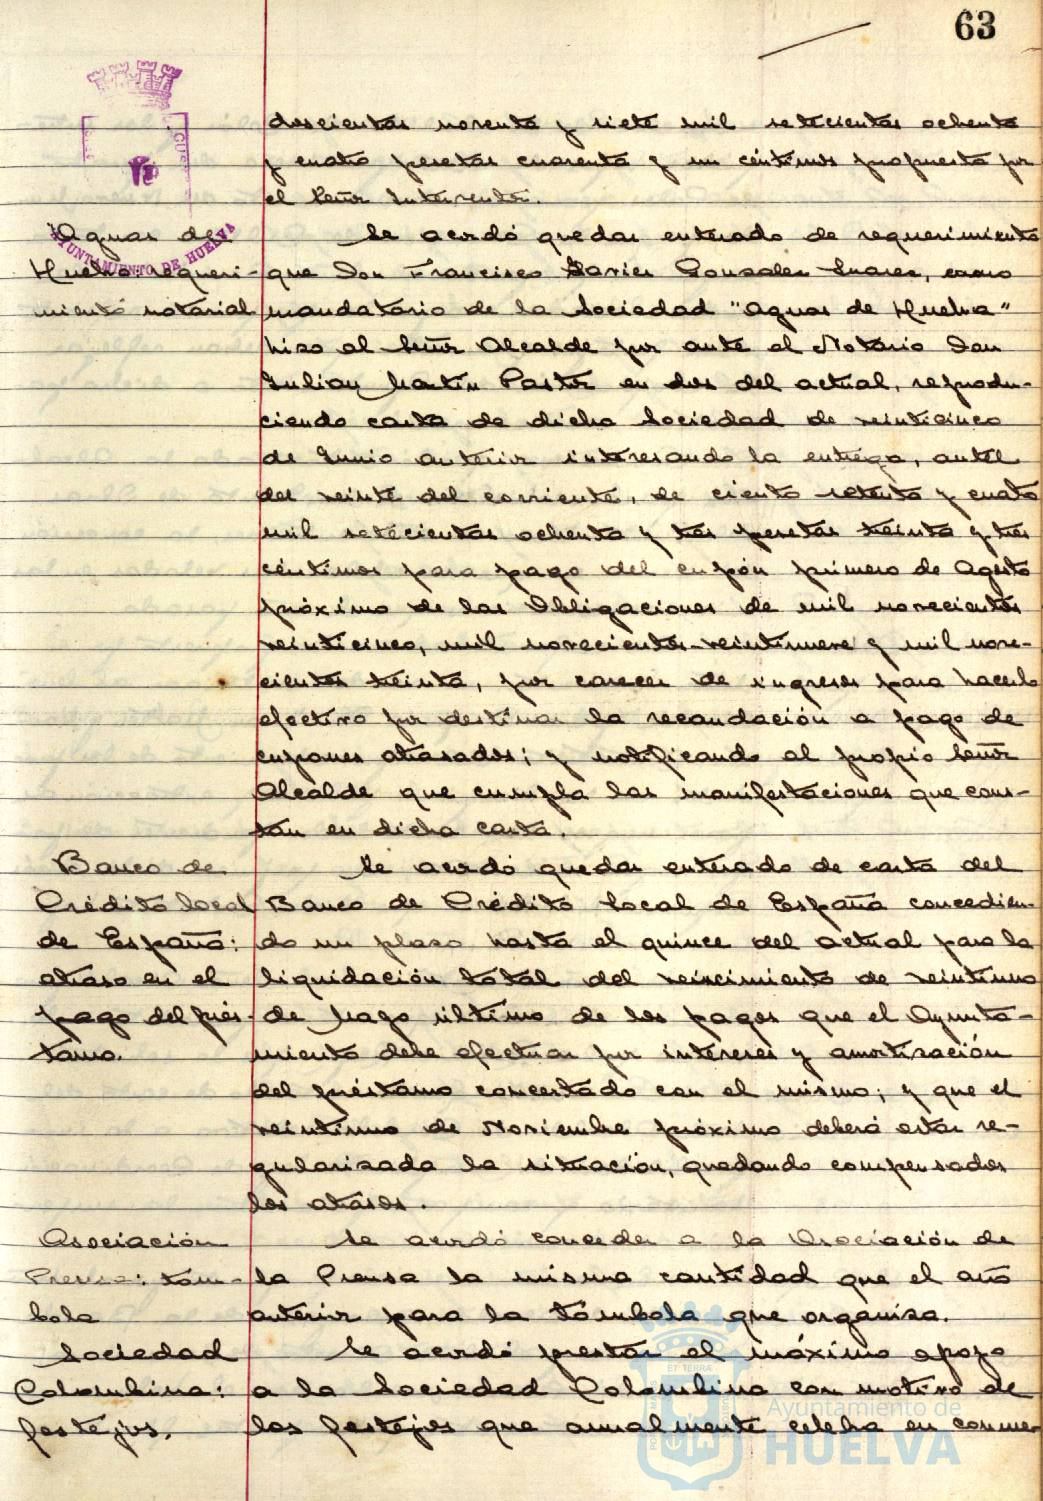 63
doscientas noventa y siete mil setecientas ochenta
y cuatro pesetas cuarenta y un céntimos propuesta por
el Señor Interventor.
Aguas de
Huelva: requeri-
miento notarial
AYUNTAMIENTO DE HUELVA
Se acordó quedar enterado de requerimiento
que Don Francisco Xavier Gonzalez Suarez, como
mandatario de la Sociedad "Aguas de Huelva"
hizo al Señor Alcalde por ante el Notario Don
Julian Martin Pastor en dos del actual, reprodu-
ciendo carta de dicha Sociedad de veinticinco
de Junio anterior interesando la entrega, antes
del veinte del corriente, de ciento setenta y cuatro
mil setecientas ochenta y tres pesetas treinta y tres
céntimos para pago del cupón primero de Agosto
próximo de las Obligaciones de mil novecientos
veinticinco, mil novecientos veintinueve y mil nove-
cientos treinta, por carecer de ingresos para hacerlo
efectivo por destinar la recaudación a pago de
cupones atrasados; y notificando al propio Señor
Alcalde que cumpla las manifestaciones que cons-
tan en dicha carta.
Banco de
Crédito local
de España:
atraso en el
pago del prés-
tamo.
Se acordó quedar enterado de carta del
Banco de Crédito Local de España concedien-
do un plazo hasta el quince del actual para la
liquidación total del vencimiento de veintiuno
de Mayo último de los pagos que el Ayunta-
miento debe efectuar por intereses y amortización
del préstamo concertado con el mismo; y que el
veintiuno de Noviembre próximo deberá estar re-
gularizada la situación, quedando compensados
los atrasos.
Asociación
Prensa: tóm-
bola
Se acordó conceder a la Asociación de
la Prensa la misma cantidad que el año
anterior para la tómbola que organiza.
Sociedad
Colombina:
festejos.
Se acordó prestar el máximo apoyo
a la Sociedad Colombina con motivo de
los festejos que anualmente celebra en conme-
Ayuntamiento de
HUELVA